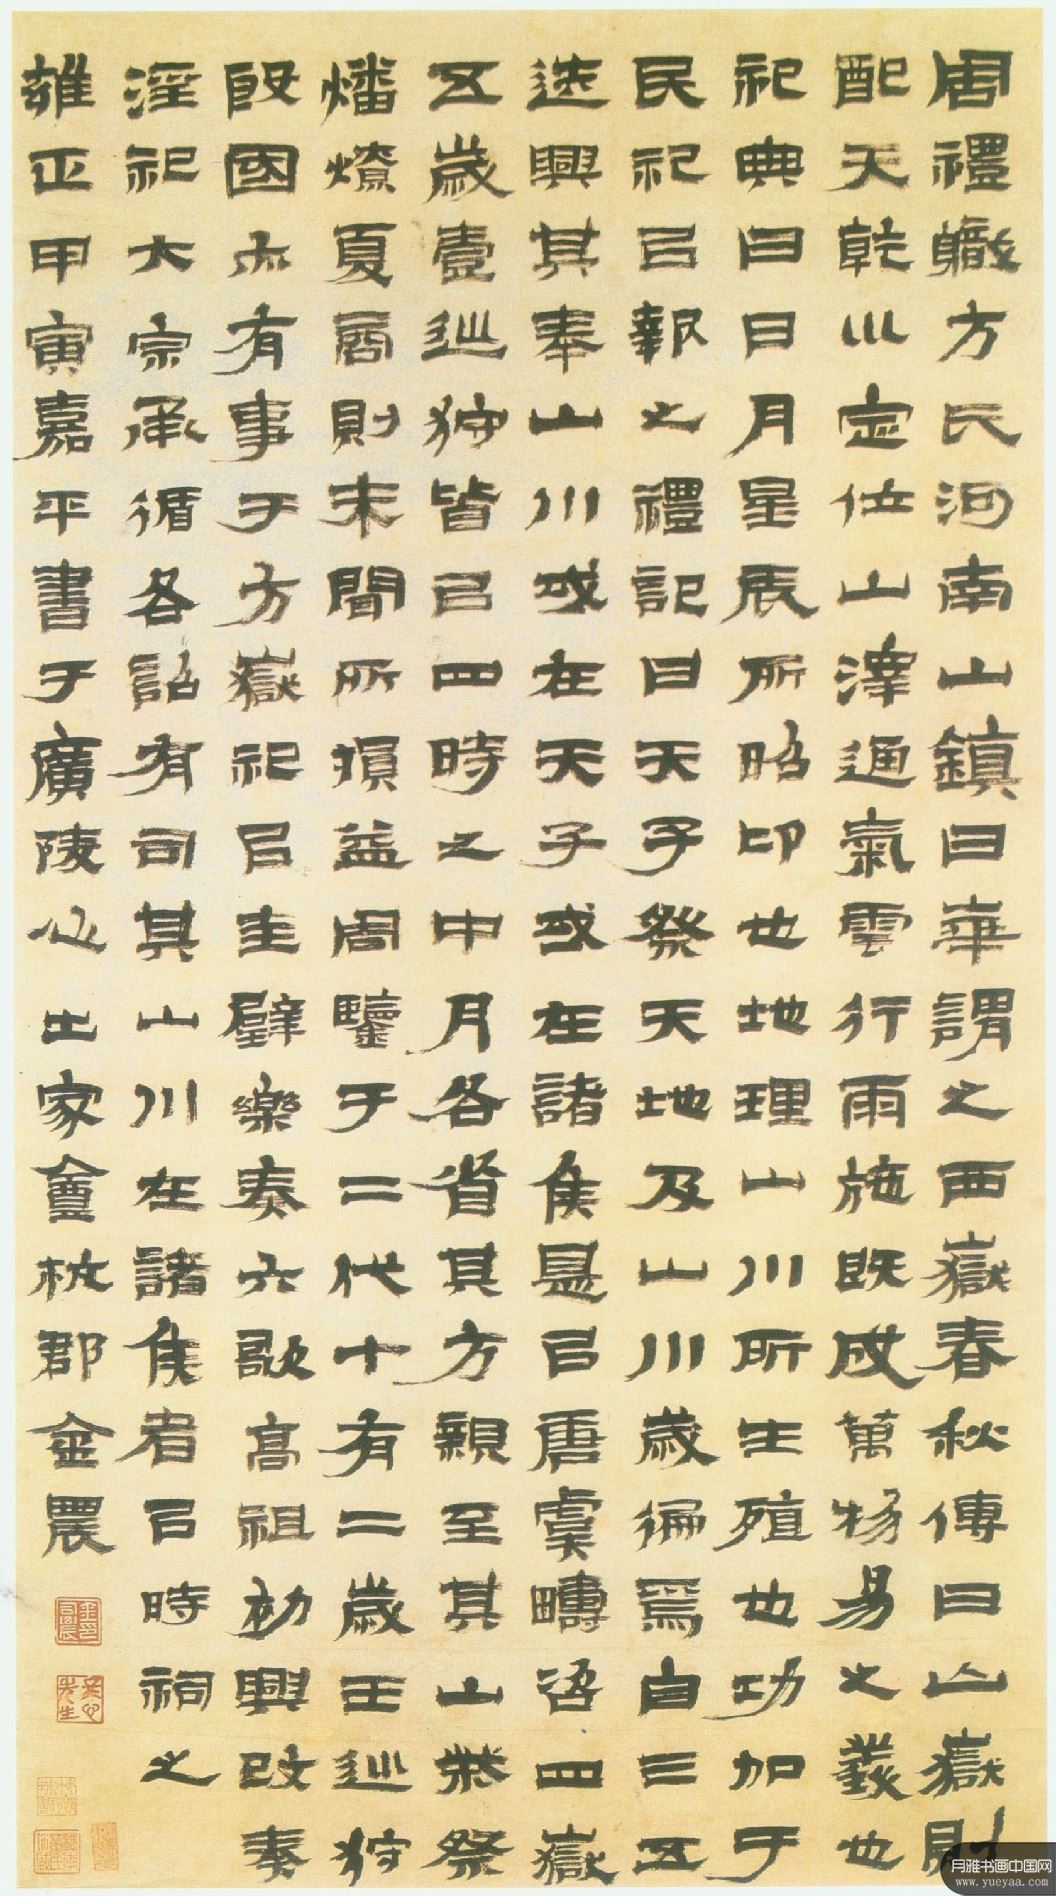 周禮職方氏河南山鎮曰華謂之西嶽春秋傳曰山嶽則
配天乾巛定位山澤通氣雲行雨施既成萬物易之義也
祀典曰日月星辰所昭卬也地理山川所生殖也功加于
民祀㠯報之禮記曰天子祭天地及山川歲徧焉自三五
迭興其奉山川或在天子或在諸侯是㠯唐虞疇咨四嶽
五歲壹巡狩皆㠯四時之中月各省其方親至其山柴祭
燔燎夏商則未聞所損益周鑒于二代十有二歲王巡狩
殷國亦有事于方嶽祀㠯圭璧樂奏六歌高祖初興改秦
淫祀大宗承循各詔有司其山川在諸侯者㠯時祠之
雍正甲寅嘉平書于廣陵心土家盦杭郡金農
金農印
月雅书画中国网
www.yueyaa.com